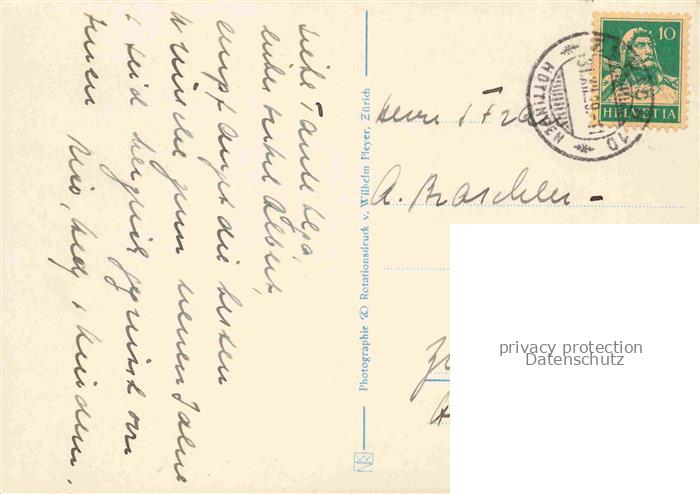 Liebe Tante Lisa,
lieber Onkel Albert,
empfangt die besten
Wünsche zum neuen Jahre
+ seid herzlich gegrüsst von
Euren
Photographie & Rotationsdruck v. Wilhelm Pleyer, Zürich
10
HELVETIA
HOTTINGEN
10
Herr + Frau
A. Braschler -
privacy protection
Datenschutz